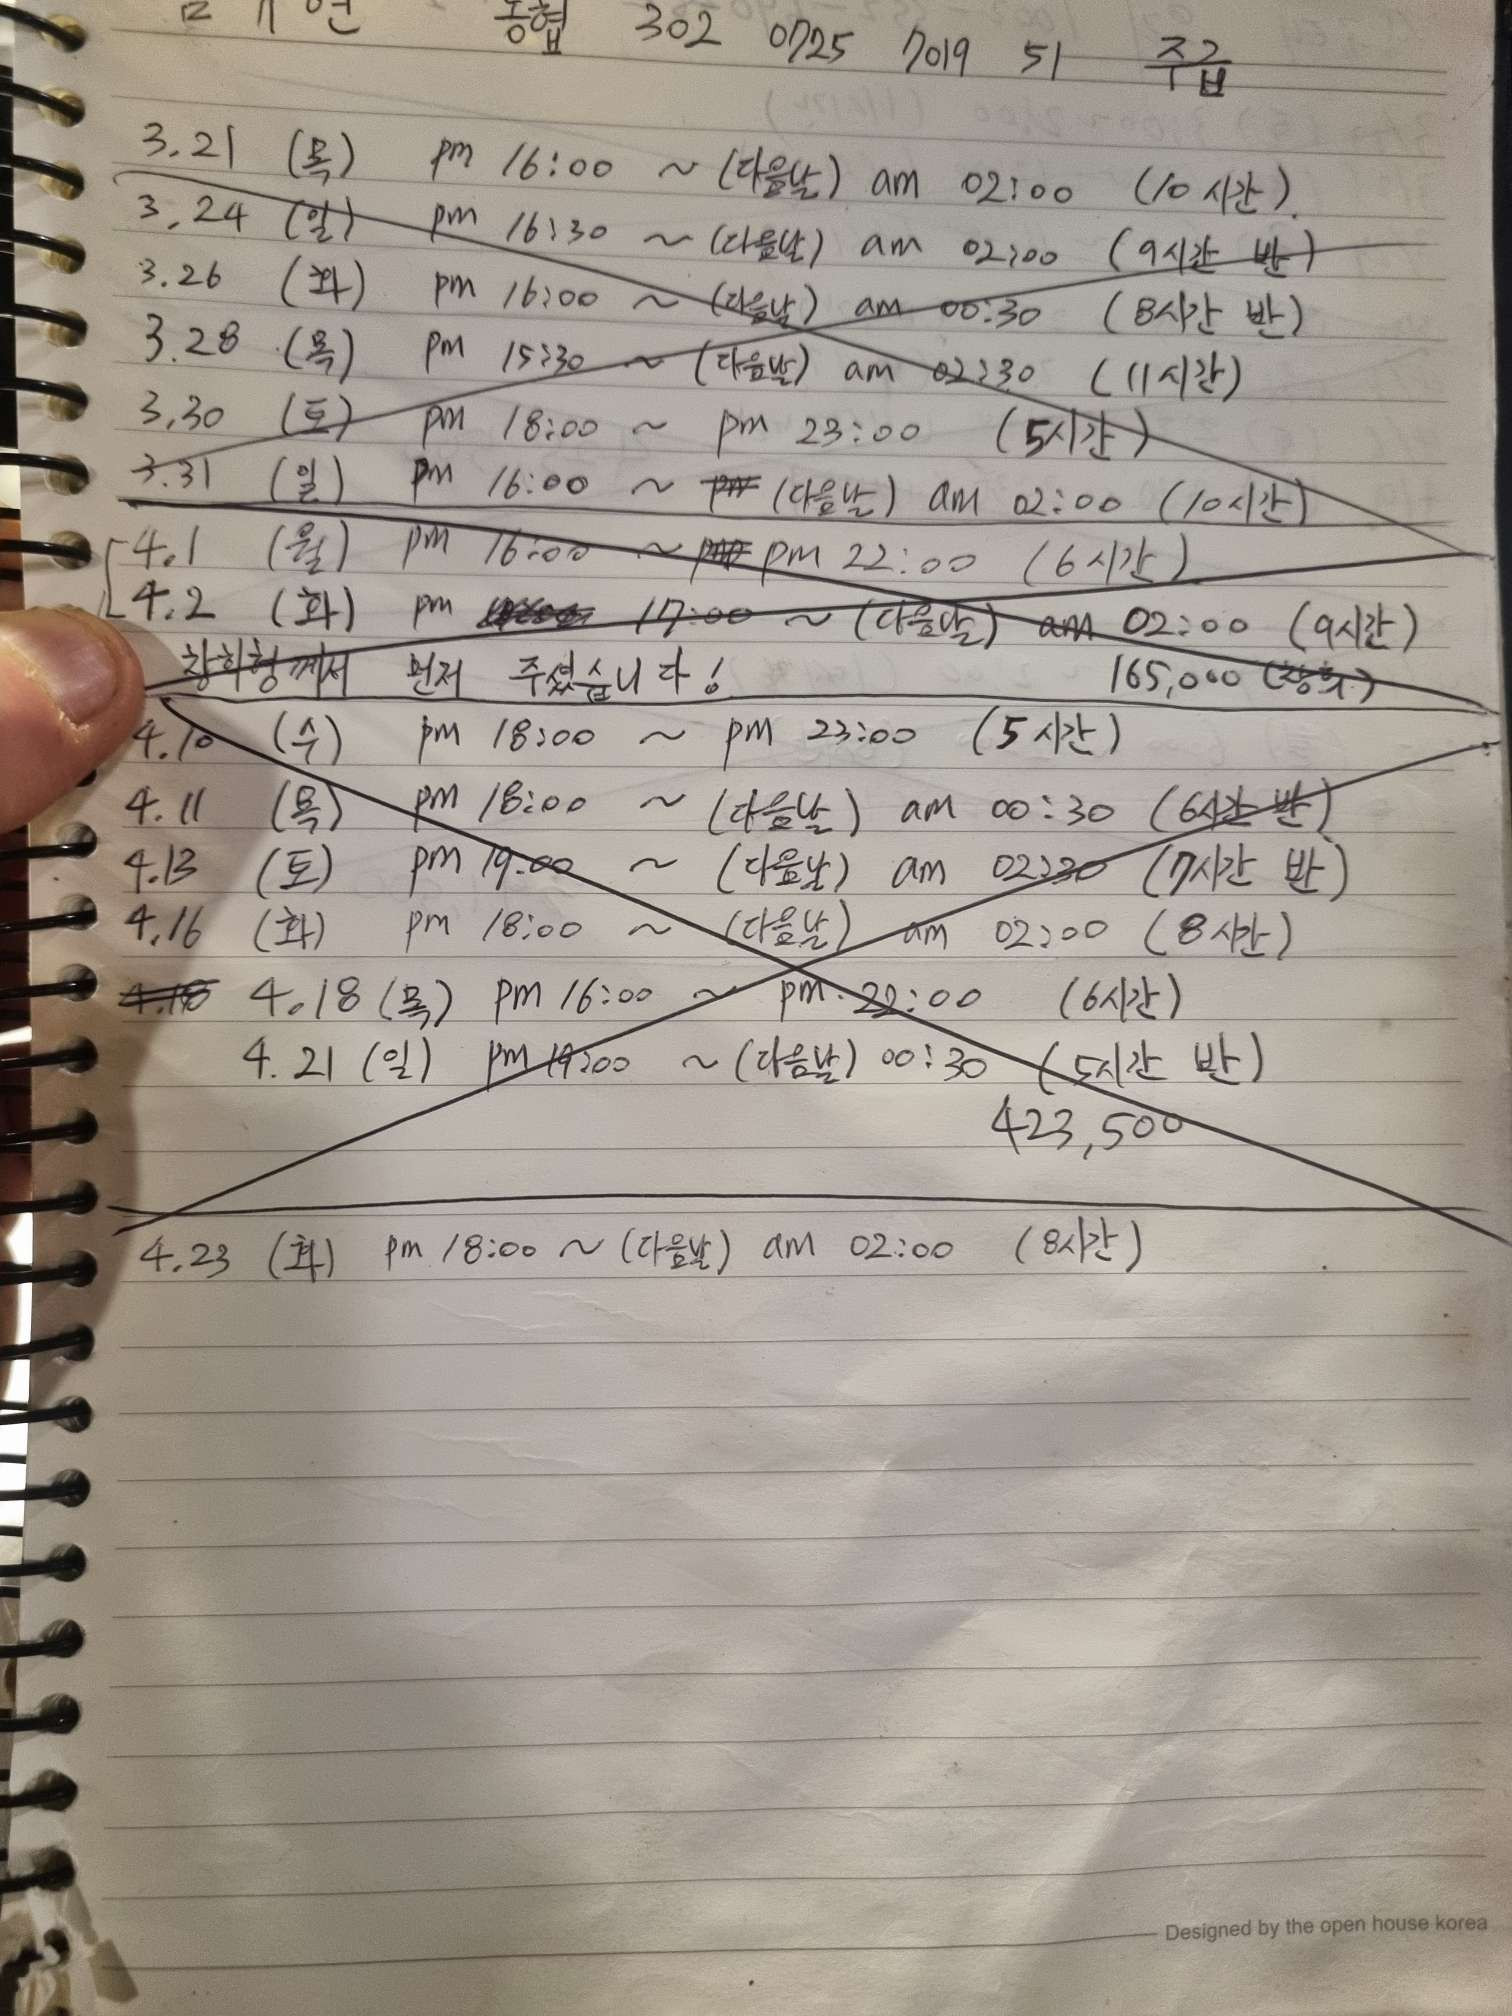 농협 302 0725 7019 51 주급
3.21 (목) pm 16:00 ~ (다음날) am 02:00 (10시간).
3.24 (일) pm 16:30 ~ (다음날) am 02:00 (9시간 반)
3.26 (화) pm 16:00 ~ (다음날) am 00:30 (8시간 반)
3.28 (목) pm 15:30 ~ (다음날) am 02:30 (11시간)
3.30 (토) pm 18:00 ~ pm 23:00 (5시간)
3.31 (일) pm 16:00 ~ (다음날) am 02:00 (10시간)
4.1 (월) pm 16:00 ~ pm 22:00 (6시간)
4.2 (화) pm 17:00 ~ (다음날) am 02:00 (9시간)
창희형께서 먼저 주셨습니다! 165,000 (창희)
4.10 (수) pm 18:00 ~ pm 23:00 (5시간)
4.11 (목) pm 18:00 ~ (다음날) am 00:30 (6시간 반)
4.13 (토) pm 19:00 ~ (다음날) am 02:30 (7시간 반)
4.16 (화) pm 18:00 ~ (다음날) am 02:00 (8시간)
4.18 4.18 (목) pm 16:00 ~ pm 22:00 (6시간)
4.21 (일) pm 19:00 ~ (다음날) 00:30 (5시간 반)
423,500
4.23 (화) pm 18:00 ~ (다음날) am 02:00 (8시간)
Designed by the open house korea